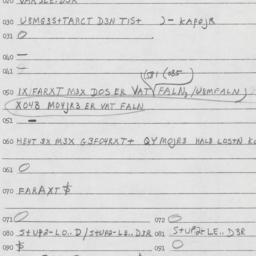 030 U8MG3S+TARCT D3N TIS+ )- KAPOJR
031 O
040 —
041 —
050 IX/FARXT M3X DOS ER VAT (FALN, /U8MFALN)
XO48 MOYJR3 ER VAT FALN
051 —
060 HEUT 3X M3X G3FO4RXT+ QYMOJR3 HALB LOS+N
061 O
070 FARAXT $
071 O 072 O
080 S+UP2-LO..D/S+UP2-LE..D3R 081 S+UP2-LE..D3R
090 $ 091 O